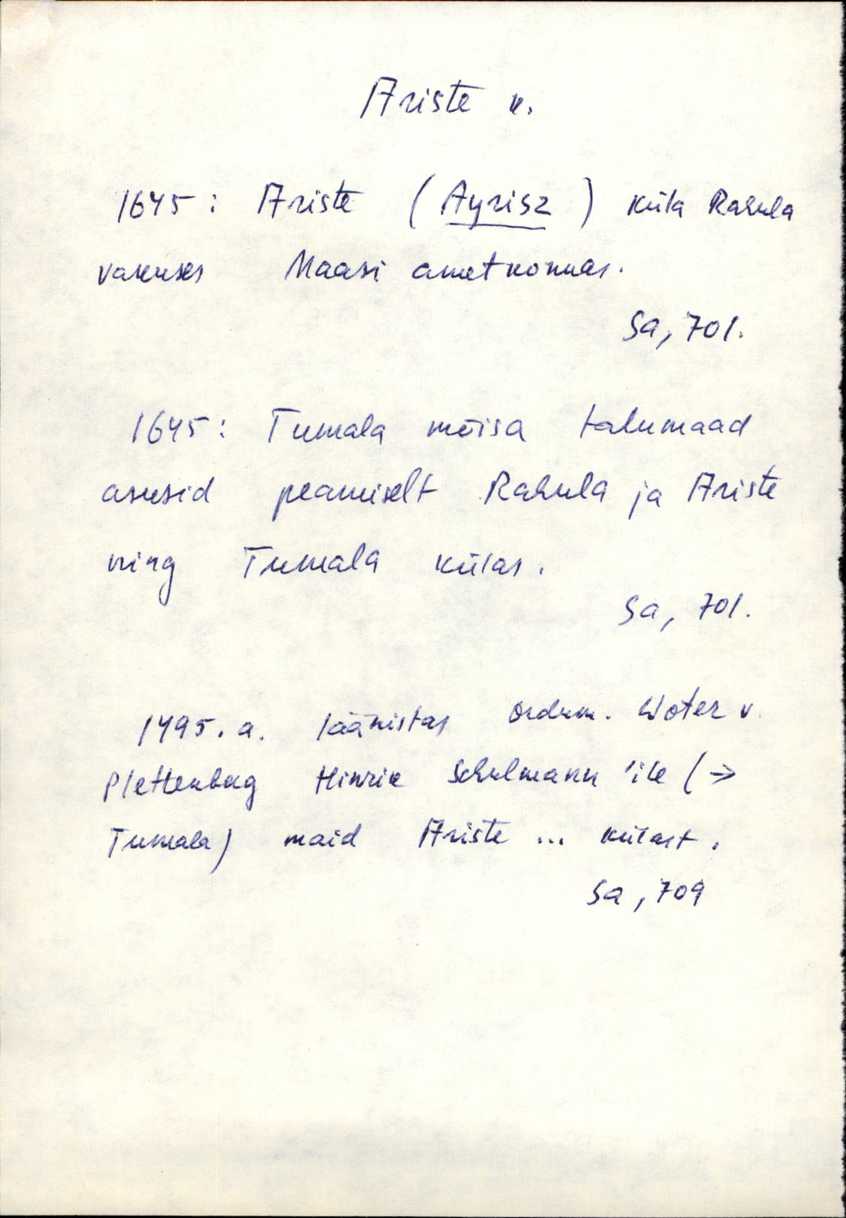 Ariste k.
1645: Ariste (Ayrisz) küla Rahula
vakuses Maasi ametkonnas.
Sa, 701.
1645: Tumala mõisa talumaad
asusid peamiselt Rahula ja Ariste
ning Tumala külas.
Sa, 701.
1495. a. läänistas ordum. Woter v.
Plettenberg Hinric Schulmann'ile (→
Tumala) maid Ariste ... külast.
Sa, 709